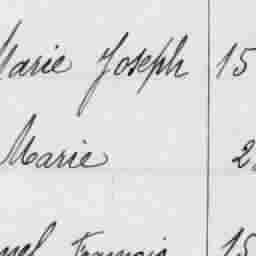 Marie Joseph 15
Marie 2
François 15